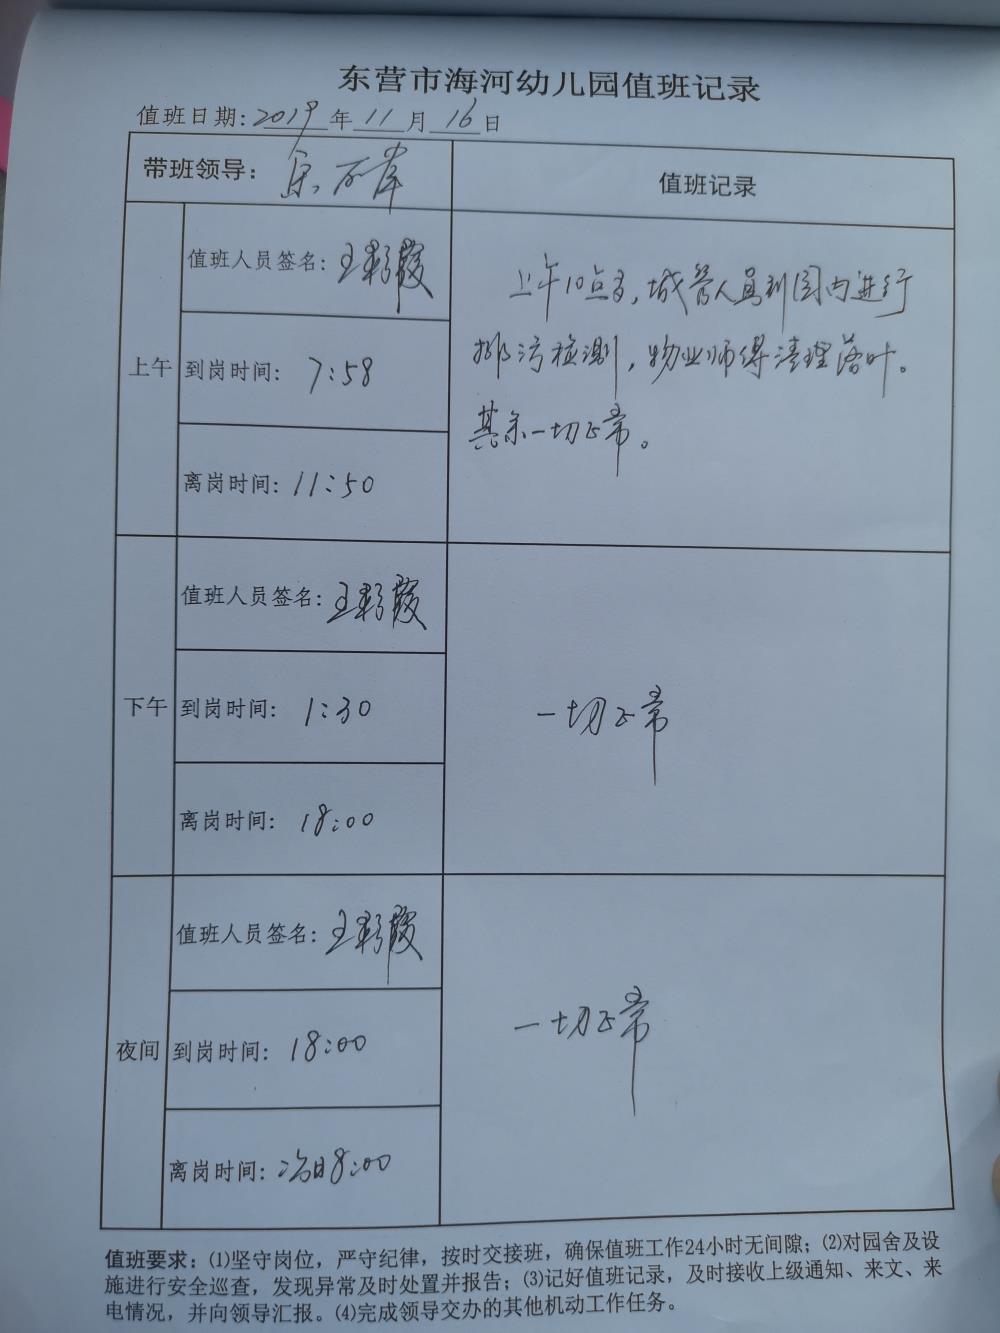 东营市海河幼儿园值班记录
值班日期：2019年11月16日
带班领导：
值班记录
上午
值班人员签名：王彩霞
到岗时间：7:58
离岗时间：11:50
上午10点多，城管人员到园内进行
排污检测，物业师傅清理落叶。
其余一切正常。
下午
值班人员签名：王彩霞
到岗时间：1:30
离岗时间：18:00
一切正常
夜间
值班人员签名：王彩霞
到岗时间：18:00
离岗时间：次日8:00
一切正常
值班要求：(1)坚守岗位，严守纪律，按时交接班，确保值班工作24小时无间隙；(2)对园舍及设
施进行安全巡查，发现异常及时处置并报告；(3)记好值班记录，及时接收上级通知、来文、来
电情况，并向领导汇报。(4)完成领导交办的其他机动工作任务。